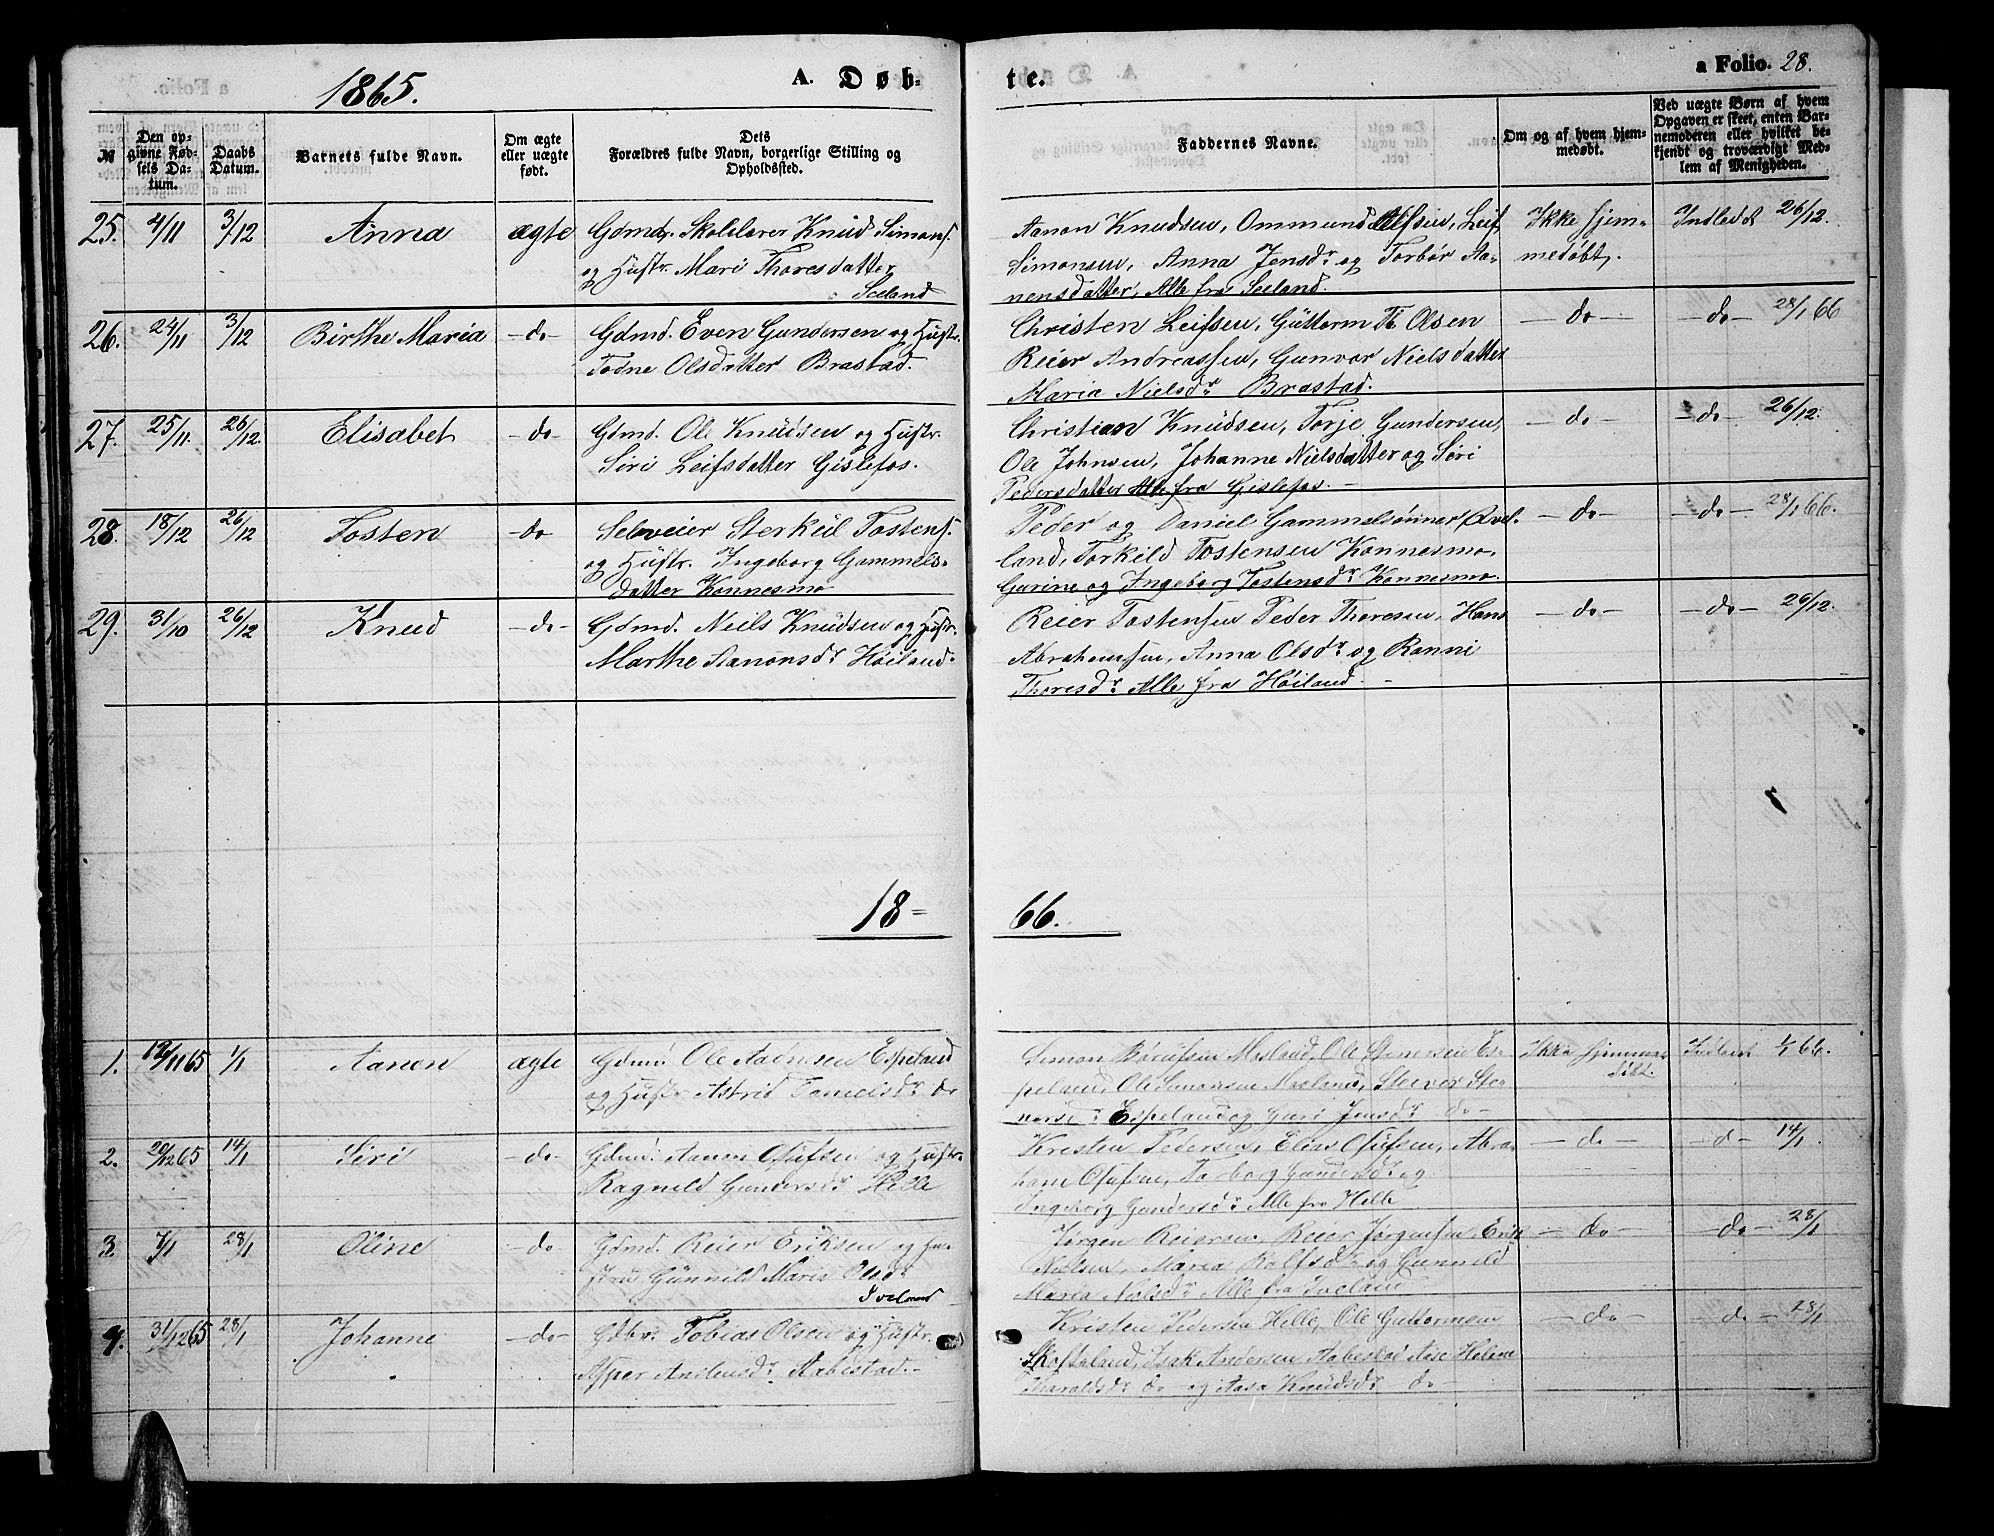 1865.
A. Døb-
te.
a Folio. 28.
№
Den op-
givne Fød-
sels Da-
tum.
Daabs
Datum.
Barnets fulde Navn.
Om ægte
eller uægte
født.
Dets
Forældres fulde Navn, borgerlige Stilling og
Opholdssted.
Faddernes Navne.
Om og af hvem hjem-
medøbt.
Ved uægte Børn af hvem
Opgaven er skeet, enten Bar-
nemoderen eller hvilket be-
kjendt og troværdigt Med-
lem af Menigheden.
25. 4/11 3/12 Anna ægte Gdmd. Skolelærer Knud Simons.
og Hustr. Mari Thoresdatter
Seeland
Aanon Knudsen, Ommund Alfsen, Leif
Simonsen, Anna Jensdr og Torbør Aa-
nensdatter, Alle fra Seeland.
Ikke hjem-
medøbt.
Indledet 26/12.
26. 24/11 3/12 Birthe Maria -do- Gdmd. Even Gundersen og Hustr.
Todne Olsdatter Brastad.
Christen Leifsen, Guttorm Olsen
Reier Andreassen, Gunvor Nielsdatter
Maria Nielsdr Brastad.
-do- -do- 28/1 66
27. 25/11. 26/12. Elisabet -do- Gdmd. Ole Knudsen og Hustr.
Siri Leifsdatter Gislefos.
Christian Knudsen, Torje Gundersen,
Ole Johnsen, Johanne Nielsdatter og Siri
Pedersdatter Alle fra Gislefos.-
-do- -do- 26/12.
28. 18/12 26/12 Tosten -do- Selveier Sterkul Tostens.
og Hustr. Ingeborg Gammels-
datter Konnesmo
Peder og Daniel Gammelsønner Qvel-
land, Torkild Tostensen Konnesmo,
Gurine og Ingeborg Tostensdr Konnesmo.
-do- -do- 28/1 66.
29. 3/10 26/12 Knud -do- Gdmd. Niels Knudsen og Hustr.
Marthe Aanonsdr Høiland.
Reier Tostensen Peder Thoresen, Hans
Abrahamsen, Anna Olsdr og Ranni
Thoresdr Alle fra Høiland.-
-do- -do- 26/12.
18=
66.
1. 12/11 65 1/1 Aanon ægte Gdmd. Ole Espeland
og Hustr. Astrid do
Simon Mosland, Ole Stenersen Es-
peland, Ole Simonsen Mosland,
Espeland og Guri Jensdr do-
Ikke hjemme-
døbt.
Indledt 1/1 66.
2. 20/12 65 14/1 Siri -do- Gdmd. Aanon Olufsen og Hustr.
Ragnild Gundersdr Helle
Kristen Pedersen, Elias Olufsen, Abra-
ham Olufsen, Torborg Gundersdr og
Ingeborg Gundersdr Alle fra Helle
-do- -d- 14/1
3. 7/1 28/1 Oline -do- Gdmd. Reier Eriksen og Hu-
stru Gunnild Maria Olsdr
Iveland
Jørgen Reiersen, Reier Jørgensen, Erik
Nielsen, Maria Rolfsdr og Gunnild
Maria Nielsdr Alle fra Iveland
-do- -do- 28/1
4. 31/12 65 28/1 Johanne -do- Gdbr. Tobias Olsen og Hustr.
Aabestad.-
Kristen Pedersen Helle, Ole Guttormsen
Skofteland, Isak Andersen Aabestad Aase Helene
Tharaldsdr do og Aasa Knudsdr do-
-do- -do- 28/1